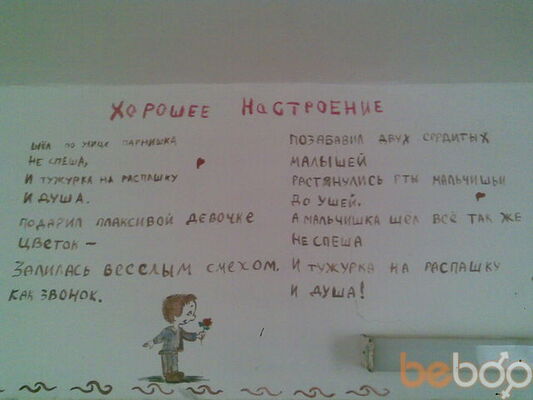 ХОРОШЕЕ НАСТРОЕНИЕ
ШЁЛ ПО УЛИЦЕ ПАРНИШКА
НЕ СПЕША,
И ТУЖУРКА НА РАСПАШКУ
И ДУША.
ПОДАРИЛ ПЛАКСИВОЙ ДЕВОЧКЕ
ЦВЕТОК –
ЗАЛИЛАСЬ ВЕСЕЛЫМ СМЕХОМ.
КАК ЗВОНОК.
ПОЗАБАВИЛ ДВУХ СЕРДИТЫХ
МАЛЫШЕЙ
РАСТЯНУЛИСЬ РТЫ МАЛЬЧИШЬИ
ДО УШЕЙ.
А МАЛЬЧИШКА ШЁЛ ВСЁ ТАК ЖЕ
НЕ СПЕША
И ТУЖУРКА НА РАСПАШКУ
И ДУША!
beboo